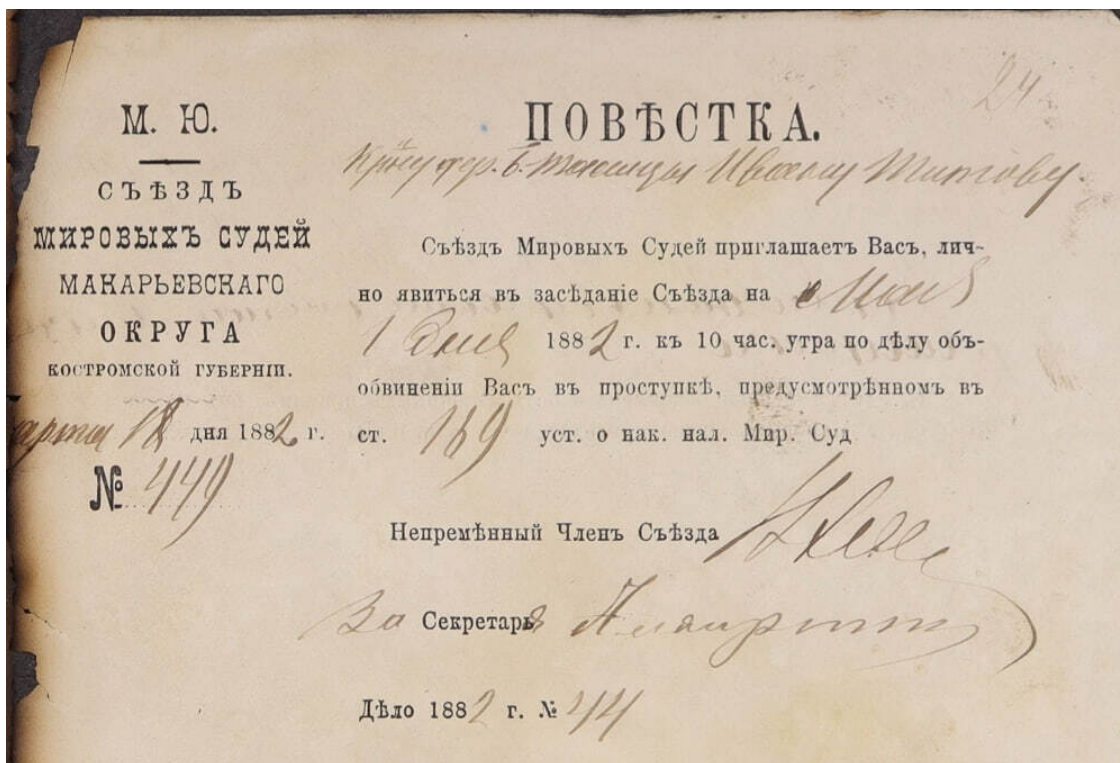 24
М. Ю.
СЪѢЗДЪ
МИРОВЫХЪ СУДЕЙ
МАКАРЬЕВСКАГО
ОКРУГА
КОСТРОМСКОЙ ГУБЕРНІИ.
арта 18 дня 1882 г.
№ 449
ПОВѢСТКА.
Титову.
Съѣздъ Мировыхъ Судей приглашаетъ Васъ, лич-
но явиться въ засѣданіе Съѣзда на Мая
1 дня 1882 г. къ 10 час. утра по дѣлу объ-
обвиненіи Васъ въ проступкѣ, предусмотрѣнномъ въ
ст. 169 уст. о нак. нал. Мир. Суд
Непремѣнный Членъ Съѣзда
За Секретаря
Дѣло 1882 г. № 44